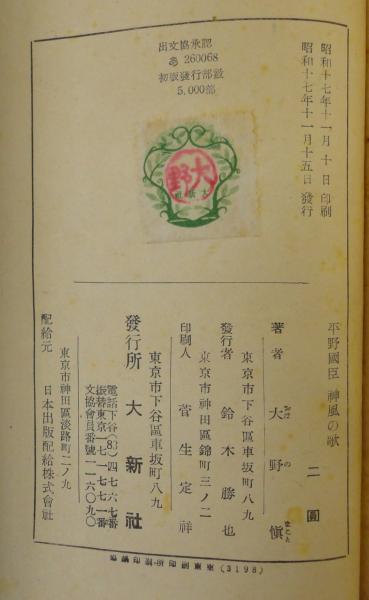 出文協承認
あ 260068
初版發行部數
5,000部
昭和十七年十一月十日 印刷
昭和十七年十一月十五日 發行
大野
平野國臣 神風の歌
二圓
著者 大野愼
おほ の まこと
東京市下谷區車坂町八九
發行者 鈴木勝也
東京市神田區錦町三ノ二
印刷人 菅生定祥
東京市下谷區車坂町八九
發行所 大新社
電話下谷(83)四七六七番
振替東京一七一七七一番
文協會員番號一一六〇九〇
東京市神田區淡路町二ノ九
配給元 日本出版配給株式會社
(3198)